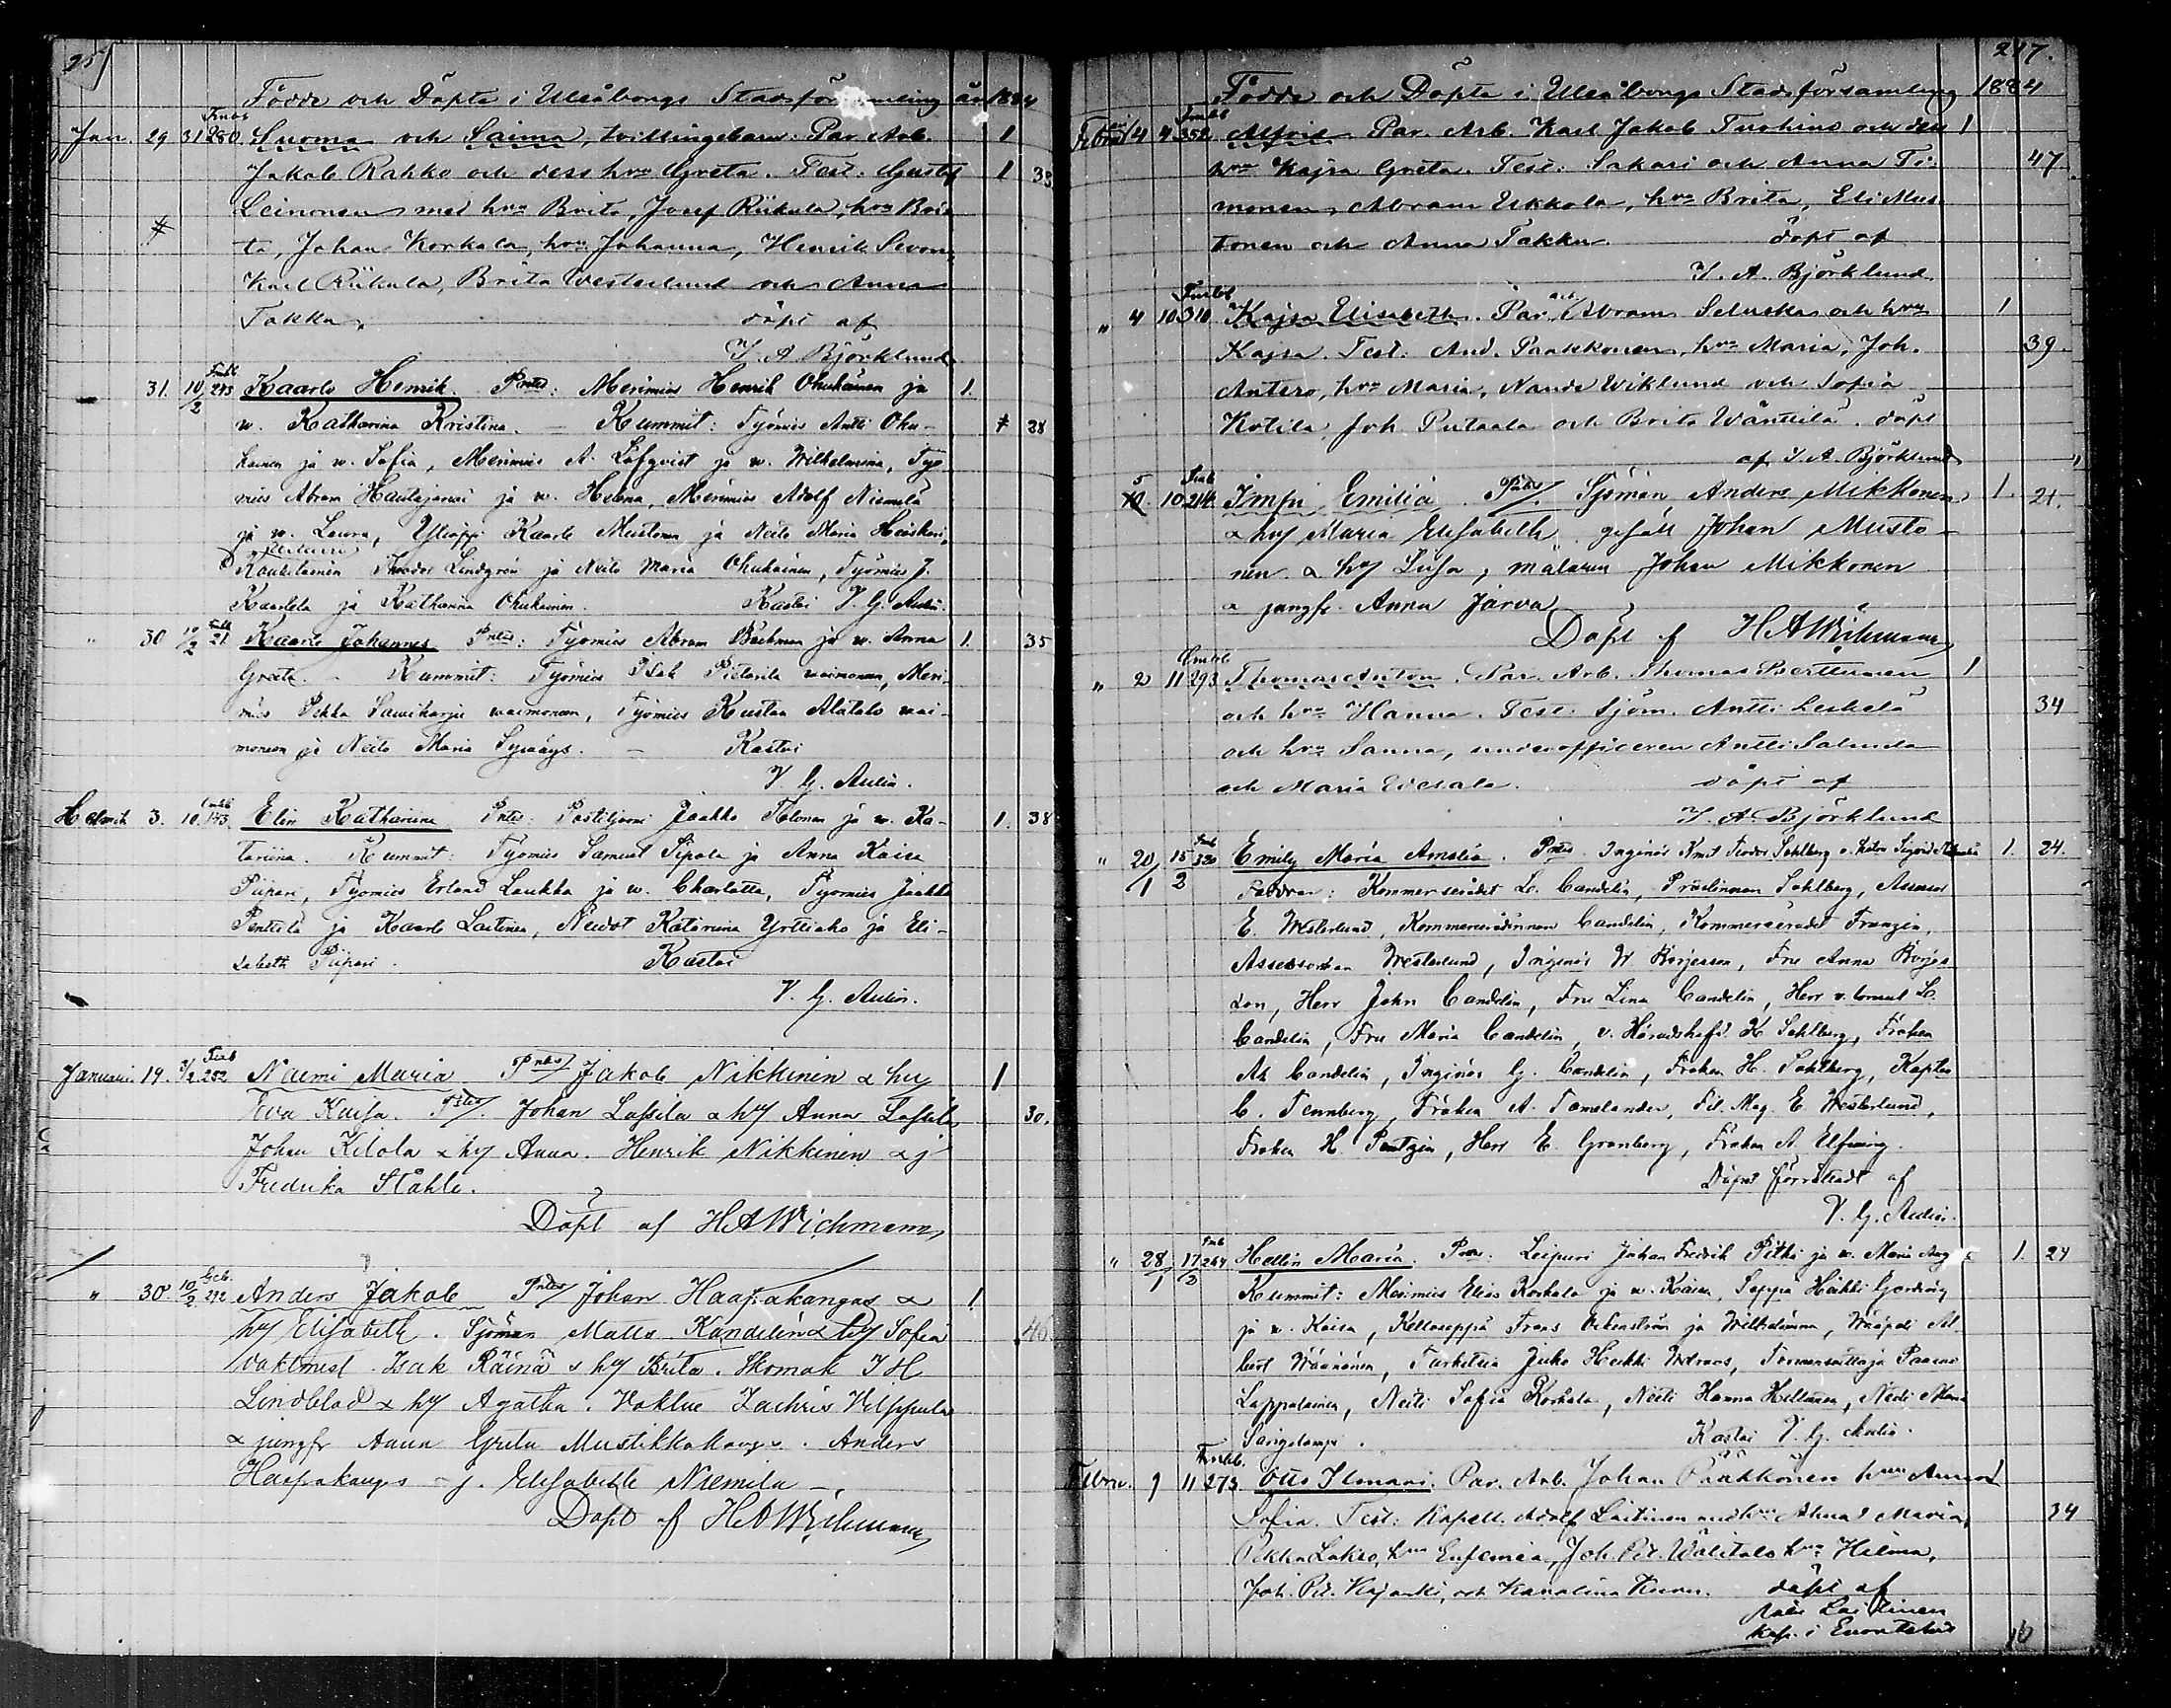 25
Födde och Döpte i Uleåborgs Stadsförsamling år 1884
Jan. 29 31 280. Suoma och Saima, tvillingebarn. Par. Arb. 1
Jakob Rahko och dess hru Greta. Test. Gustaf 1 33
Leinonen med hru Brita, Josef Riikula, hru Bri
ta, Johan Korkala, hru Johanna, Henrik
Karl Riikula, Brita Westerlund och Anna
Takka, döpt af
I. A. Björklund
31. 10/2 293 Kaarlo Henrik. Pntes: Merimies Henrik Ohukainen ja 1.
w. Katharina Kristina. – Kummit: Työmies Antti Ohu- 28
kainen ja w. Sofia, Merimies A. Löfqvist ja w. Wilhelmina, Työ
mies Abram Hautajärwi ja w. Helena, Merimies Adolf Niemelä
ja w. Laura, Ylioppi Kaarlo Mustonen ja Neito Maria Heiskari,
Lindgrén ja Neito Maria Ohukainen, Työmies J.
Kaarlela ja Katharina Ohukainen. Kastoi V. G. Aulin.
" 30 10/2 21 Kaarlo Johannes Pntes: Työmies Abram Bäckman ja w. Anna 1. 35
Greeta. – Kummit: Työmies Isak Pietarila waimonsa, Meri-
mies Pekka Sawiharju waimonsa, Työmies Kustaa Alatalo wai-
monsa ja Neito Maria Sywäys. – Kastoi
V. G. Aulin.
Helmik 3. 10. 143. Elin Katharina Pntes: Postiljoni Jaakko Tolonen ja w. Ka- 1. 38
tariina. Kummit: Työmies Samuel Sipola ja Anna Kaisa
Piipari, Työmies Erland Laukka ja w. Charlotta, Työmies Jaakko
Penttilä ja Kaarlo Laitinen, Neidot Katariina Yrttiaho ja Eli-
sabeth Piipari. Kastoi
V. G. Aulin.
Januari. 19. 3/2 252 Naemi Maria Pntes/ Jakob Nikkinen & hu 1
Eva Kaisa. Tstes/. Johan Lassila & hu Anna Lassila 30.
Johan Kilola & hu Anna. Henrik Nikkinen & j
Fredrika Ståhle.
Döpt af HAWichmann
" 30. 10/2 292 Anders Jakob Pntes/ Johan Haapakangas & 1
hu Elisabeth. Sjöman Matts Kandelin & hu Sofia 40
Vaktmest. Isak Räinä & hu Brita. Skomak I H
Lindblad & hu Agatha. Zachris Vilppula
& jungfr Anna Greta Mustikkakangs. Anders
Haapakangs – j. Elisabeth Niemilä –,
Döpt af HAWichmann
217.
Födde och Döpte i Uleåborgs Stadsförsamling 1884
4 4 352. Alfrid. Par. Arb. Karl Jakob Turkins och dess 1
hru Kajsa Greta. Test: Sakari och Anna Ti- 47
monen, Abram Ukkola, hru Brita, Eli Mus
tonen och Anna Takku. döpt af
I. A. Björklund.
" 4 10 310 Kajsa Elisabeth. Par. arb. Abram Seluska och hru 1
Kajsa. Test: And. Paakkonen, hru Maria, Joh. 39
Antero, hru Maria, Nanda Wiklund och Sofia
Kotila, Joh. Putaala och Brita Wänttilä. döpt
af I. A. Björklund
5 10 214. Impi Emilia Pntes/. Sjöman Anders Mikkonen 1. 21.
& hu Maria Elisabeth. gesäll Johan Musto-
nen & hu Lisa, målaren Johan Mikkonen
& jungfr. Anna Järva
Döpt af HAWichmann
" 2 11 293 Thomas Anton. Par. Arb. Thomas Perttunen 1
och hru Hanna. Test: Sjöm. Antti Leskelä 34
och hru Sanna, underofficeren Antti Salunda
och Maria Wesala. döpt af
I. A. Björklund
" 20/1 15/2 320 Emily Maria Amalia. Pntes. Ingeniör Knut Feodor Sahlberg o. 1. 24.
Faddrar: Kommerserådet L. Candelin, Prostinnan Sahlberg, Assessor
E. Westerlund, Kommerserådinnan Candelin, Kommerserådet Franzén,
Assessorskan Westerlund, Ingeniör W. Börjesson, Fru Anna Börjes-
son, Herr John Candelin, Fru Lina Candelin, Herr v. konsul L.
Candelin, Fru Maria Candelin, v. Häradshöfd. K. Sahlberg, Fröken
M. Candelin, Ingeniör G. Candelin, Fröken H. Sahlberg, Kapten
C. Tennberg, Fröken A. Tamelander, Fil. Mag. E. Westerlund,
Fröken H. Pentzin, Herr E. Granberg, Fröken A. Elfving.
Döpt förrättadt af
V. G. Aulin.
" 28/1 17/2 264 Hellin Maria. Pntes: Leipuri Johan Fredrik Pitki ja w. Maria Aug 1. 24
Kummit: Merimies Elias Korkala ja w. Kaisa, Seppä Heikki Gardin
ja w. Kaisa, Kelloseppä Frans Uhlenström ja Wilhelmina, Wääpeli Al-
bert Wäänänen, Turkkuri Juho Heikki Wetroos, Paavo
Lappalainen, Neiti Sofia Korkala, Neiti Hanna Hiltunen, Neiti
Kastoi V. G. Aulin.
Febru. 9 11 273 Otto Ilmari. Par. Arb. Johan Pääkkönen hru Anna 1
Sofia. Test: Kapell. Adolf Laitinen med hru Alma Maria, 34
Pekka Lakso, hru Eufemia, Joh. Pet. Wälitalo hru Hilma,
Joh. Pet. Kajanti, och Karolina Kuru. döpt af
Laitinen
kap. i Enontekis
16